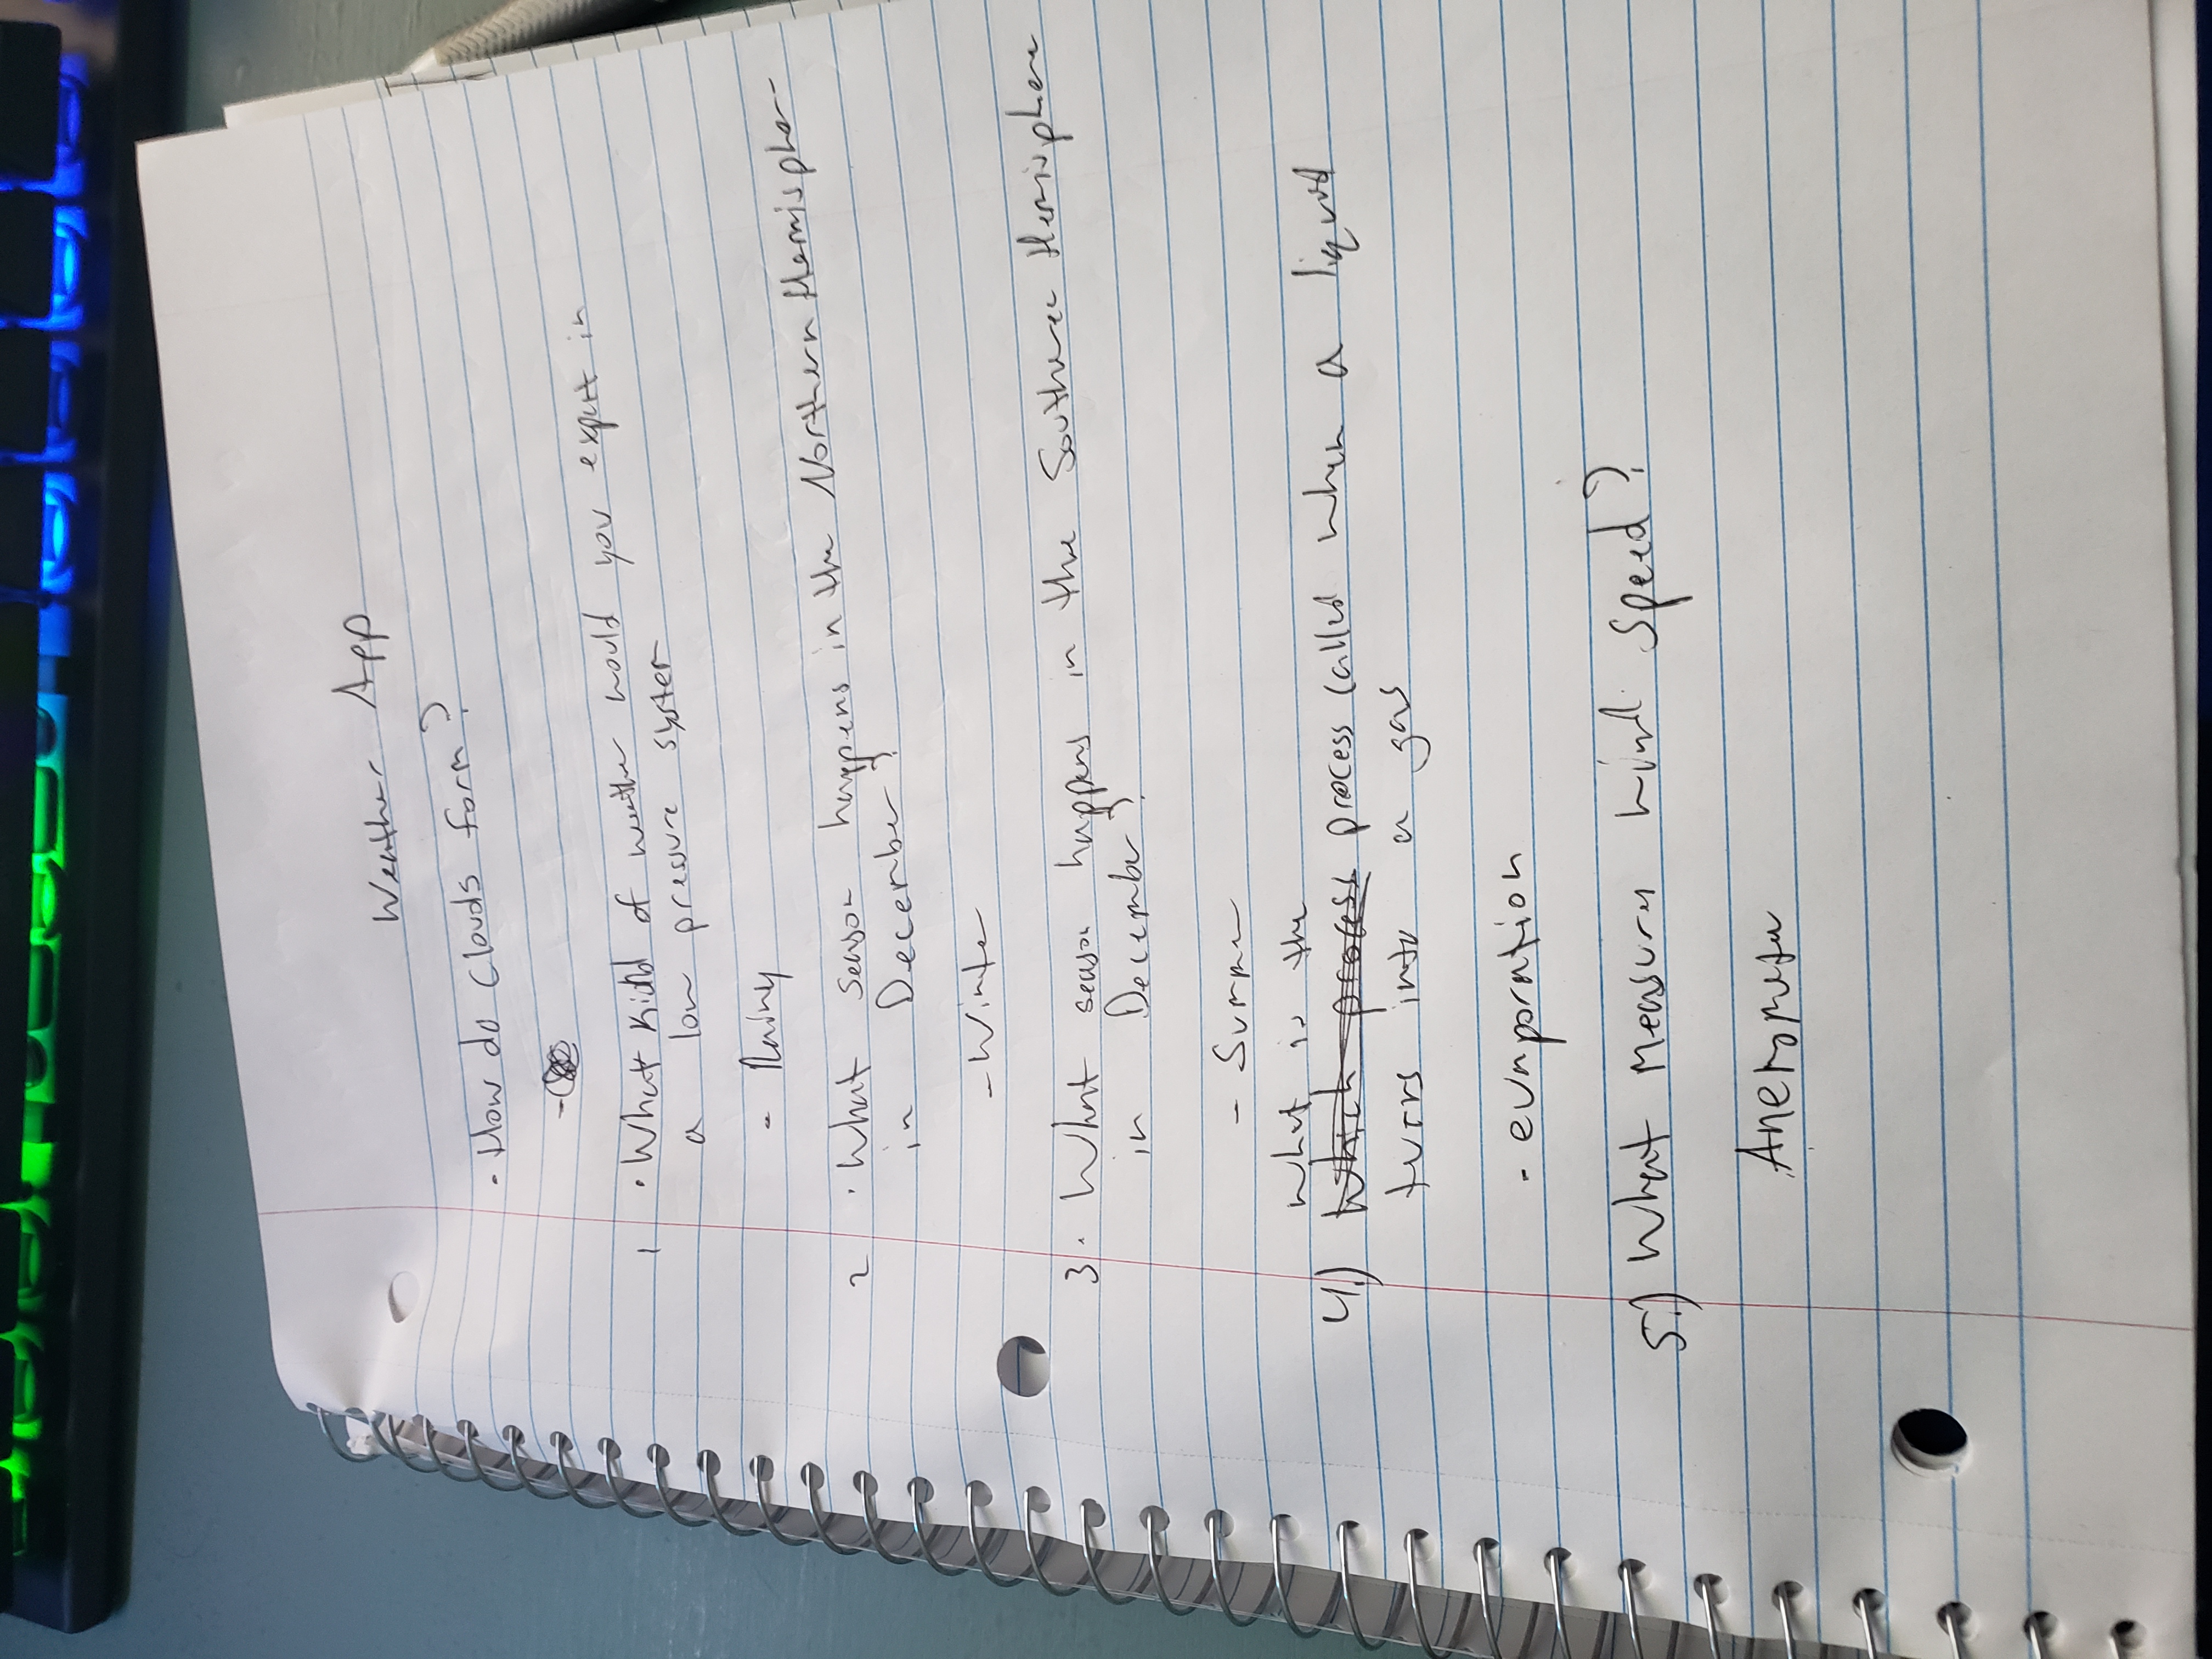 Weather App
· How do clouds form?
-
1 · What kind of weather would you expect in
a low pressure system
- Rainy
2 · What season happens in the Northern Hemisphere
in December?
- Winter
3 · What season happens in the Southern Hemisphere
in December?
- Summer
What is the
4.) Which process process called when a liquid
turns into a gas
- evaporation
5.) What measures wind speed?
Anemometer